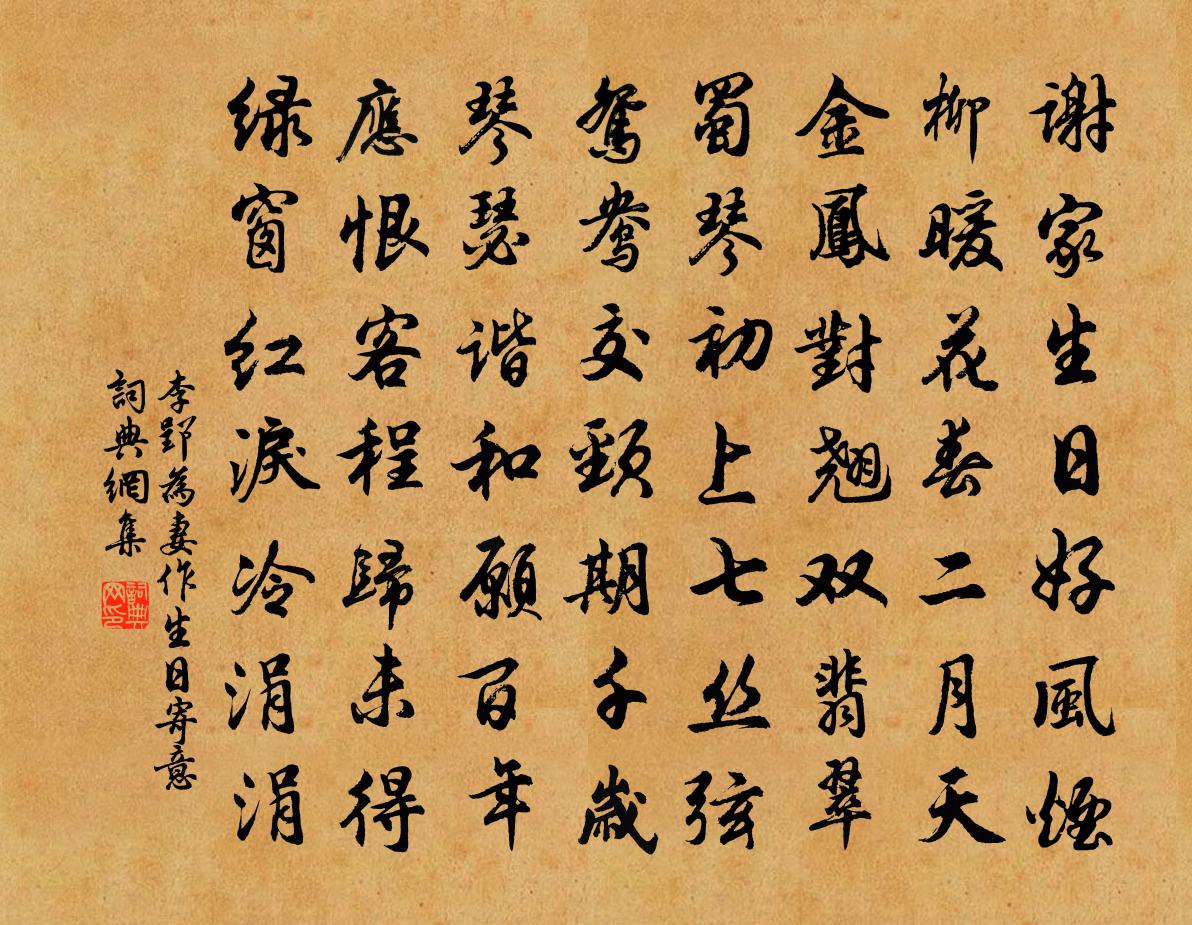 谢家生日好風煙
柳暖花春二月天
金鳳對翹双翡翠
蜀琴初上七丝弦
鴛鴦交頸期千歳
琴瑟谐和願百年
應恨客程歸未得
绿窗红淚冷涓涓
李郢為妻作生日寄意
詞典網集
詞典網印